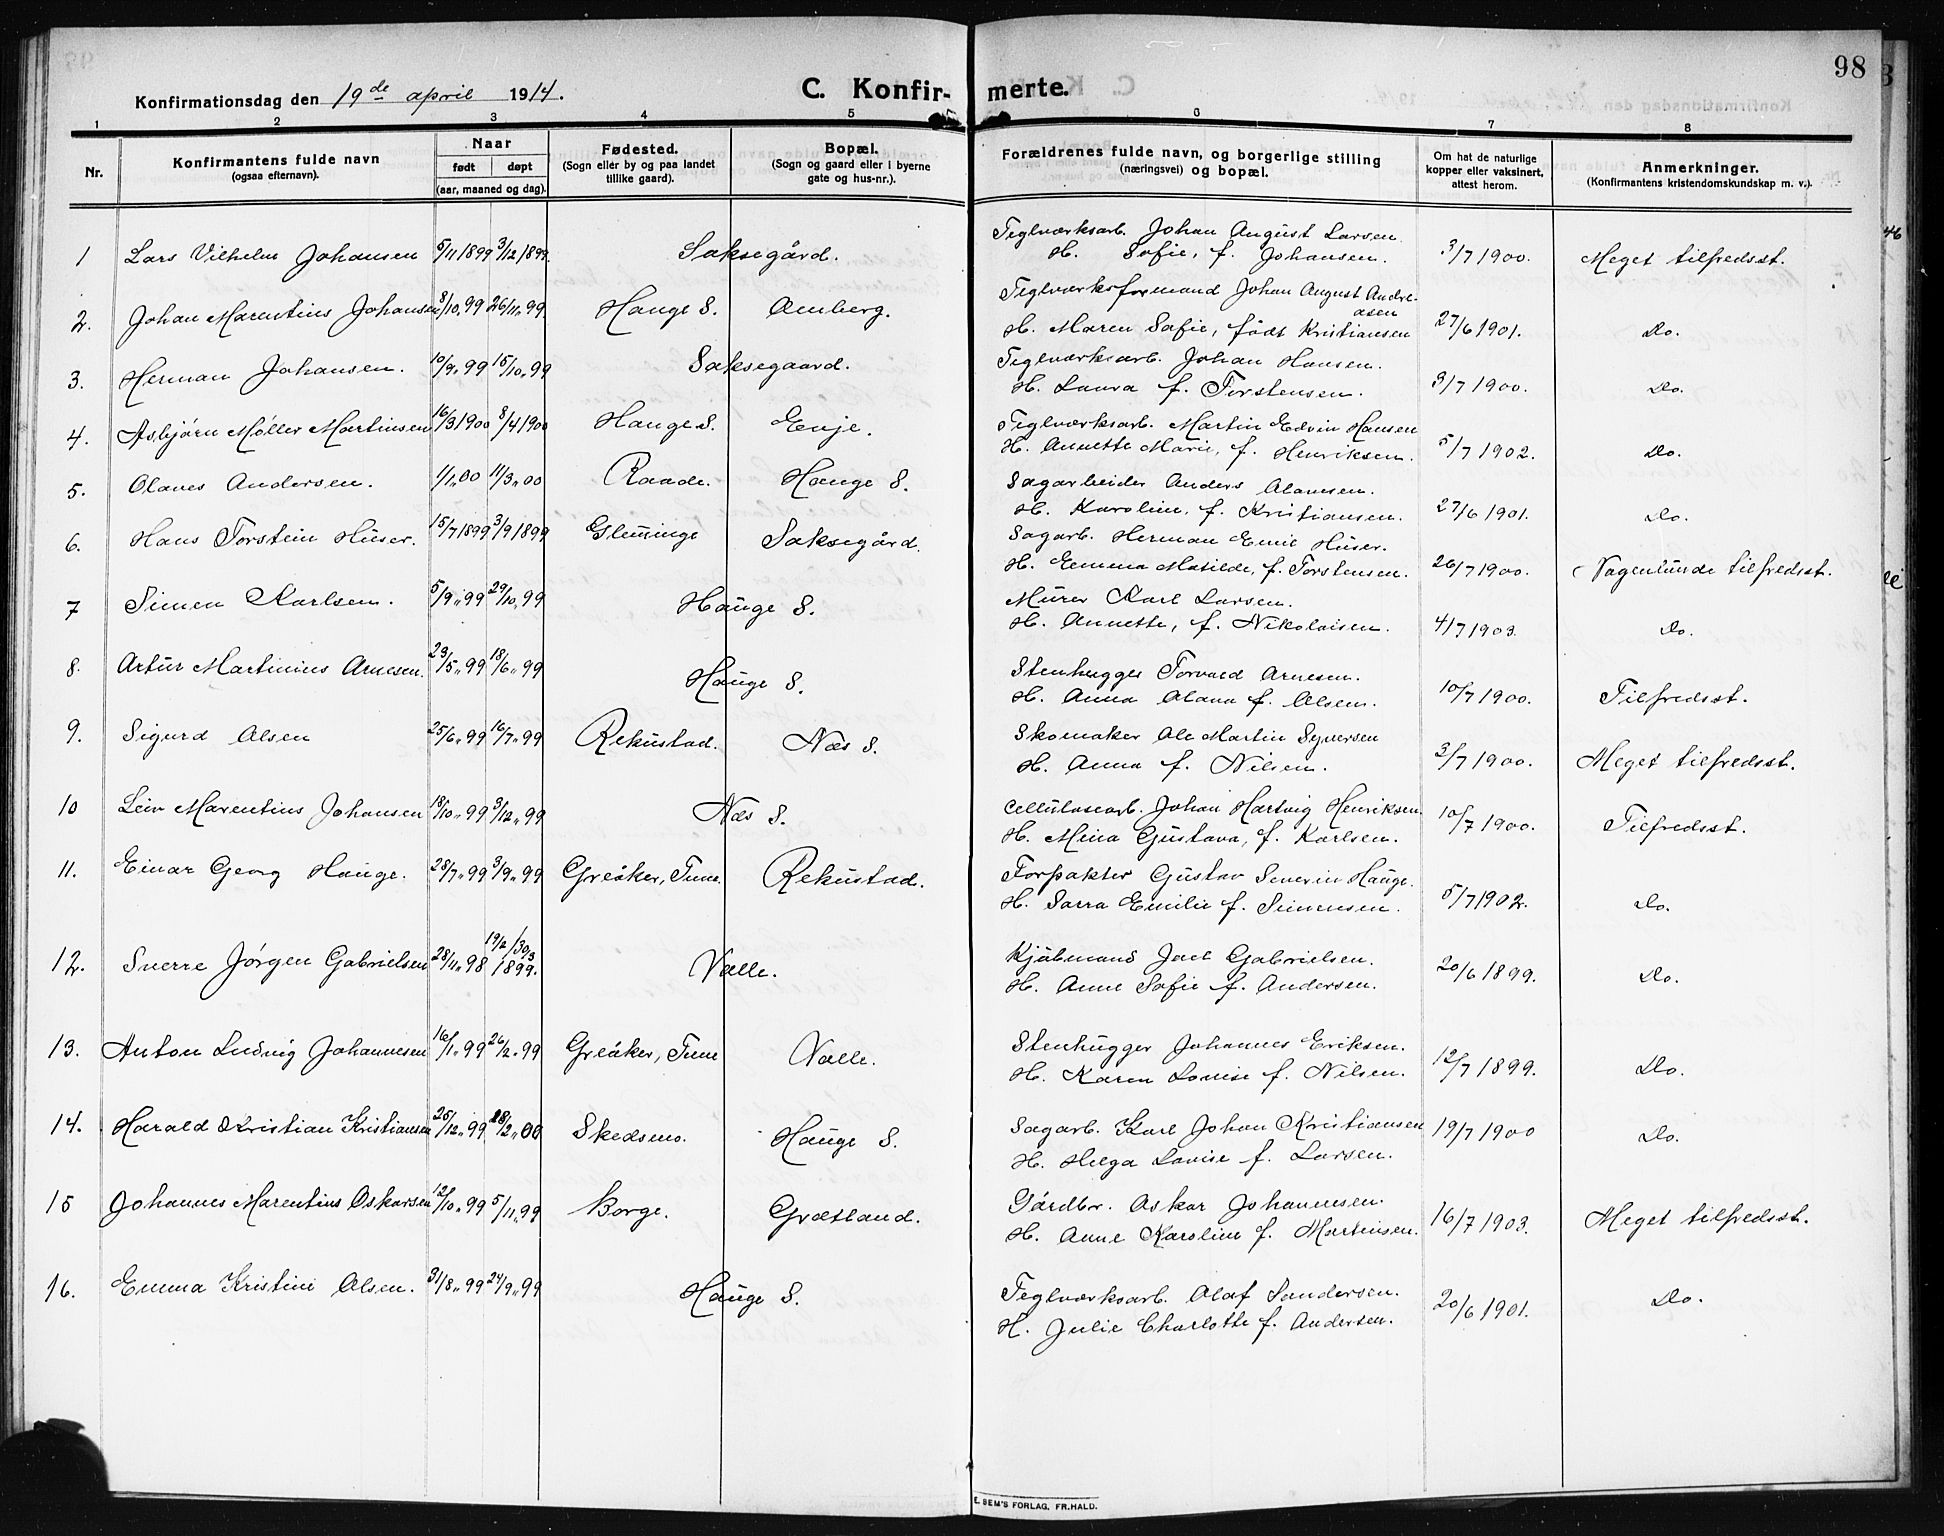 98
Konfirmationsdag den 19de april 1914.
C. Konfirmerte.
1 2 3 4 5 6 7 8
Nr.
Konfirmantens fulde navn
(ogsaa efternavn).
Naar
født døpt
(aar, maaned og dag).
Fødested.
(Sogn eller by og paa landet
tillike gaard).
Bopæl.
(Sogn og gaard eller i byerne
gate og hus-nr.).
Forældrenes fulde navn, og borgerlige stilling
(næringsvei) og bopæl.
Om hat de naturlige
kopper eller vaksinert,
attest herom.
Anmerkninger.
(Konfirmantens kristendomskundskap m. v.).
1 Lars Vilhelm Johansen 5/11 1899 3/12 1899. Saksegård. Teglværksarb. Johan August Larsen.
H. Sofie, f. Johansen. 3/7 1900. Meget tilfredsst.
2. Johan Marentius Johansen 8/10.99 26/11.99 Hauge S. Amberg. Teglværksformand Johan August Andre-
asen
H. Maren Sofie, født Kristiansen 27/6 1901. Do.
3. Herman Johansen. 10/9.99 15/10.99 Saksegaard. Teglværksarb. Johan Hansen.
H. Laura f. Torstensen. 3/7 1900. Do.
4. Asbjørn Møller Martinsen 16/3 1900 8/4 1900 Hauge S. Evje. Teglværksarb. Martin Edvin Hansen
H. Annette Marie, f. Henriksen. 5/7 1902. Do.
5. Olaves Andersen. 1/1.00 11/3.00 Raade. Hauge S. Sagarbeider Anders Olavesen.
H. Karoline, f. Kristiansen. 27/6 1901. Do.
6. Hans Torstein Huser. 15/7 1899 3/9 1899 Glemminge Saksegård. Sagarb. Herman Emil Huser.
H. Emma Matilde, f. Torstensen. 26/7 1900. Nogenlunde tilfredsst.
7 Simen Karlsen. 5/9.99 29/10.99 Hauge S. Murer Karl Larsen.
H. Annette, f. Nikolaisen. 4/7 1903. Do.
8. Artur Martinius Arnesen. 23/5.99 18/6.99 Hauge S. Stenhugger Torvald Arnesen.
H. Anna Olava f. Olsen. 10/7 1900. Tilfredsst.
9. Sigurd Olsen 25/6.99 16/7.99 Rekustad. Næs S. Skomaker Ole Martin Syversen
H. Anna f. Nilsen. 3/7 1900. Meget tilfredsst.
10 Leiv Marentius Johansen 18/10.99 3/12.99 Næs S. Cellulosearb. Johan Hartvig Henriksen.
H. Mina Gustava, f. Karlsen. 10/7 1900. Tilfredsst.
11. Einar Georg Hauge. 28/7.99 3/9.99 Greåker, Tune. Rekustad. Forpakter Gustav Severin Hauge.
H. Sarra Emilie f. Simensen. 5/7 1902. Do.
12. Sverre Jørgen Gabrielsen 28/11.98 19/2 /30/3 1899. Valle. Kjøbmand Joel Gabrielsen.
H. Anne Sofie f. Andersen. 20/6 1899. Do.
13. Anton Ludvig Johannesen 16/1.99 26/2.99 Greåker, Tune Valle. Stenhugger Johannes Eriksen.
H. Karen Lovise f. Nilsen. 12/7 1899. Do.
14. Harald Kristian Kristiansen 25/12.99 18/2.00 Skedsmo. Hauge S. Sagarb. Karl Johan Kristiansen
H. Helga Lovise f. Larsen. 19/7 1900 Do.
15 Johannes Marentius Oskarsen 12/10.99 5/11.99 Borge. Grætland. Gårdbr. Oskar Johannesen.
H. Anne Karoline f. Martinsen. 16/7 1903. Meget tilfredsst.
16. Emma Kristine Olsen. 31/8.99 24/9.99 Hauge S. Teglværksarb. Olaf Sandersen.
H. Julie Charlotte f. Andersen. 20/6 1901. Do.
E. SEM'S FORLAG, FR.HALD.